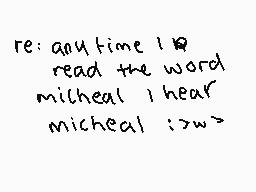 re: any time I
read the word
micheal i hear
micheal :>w>